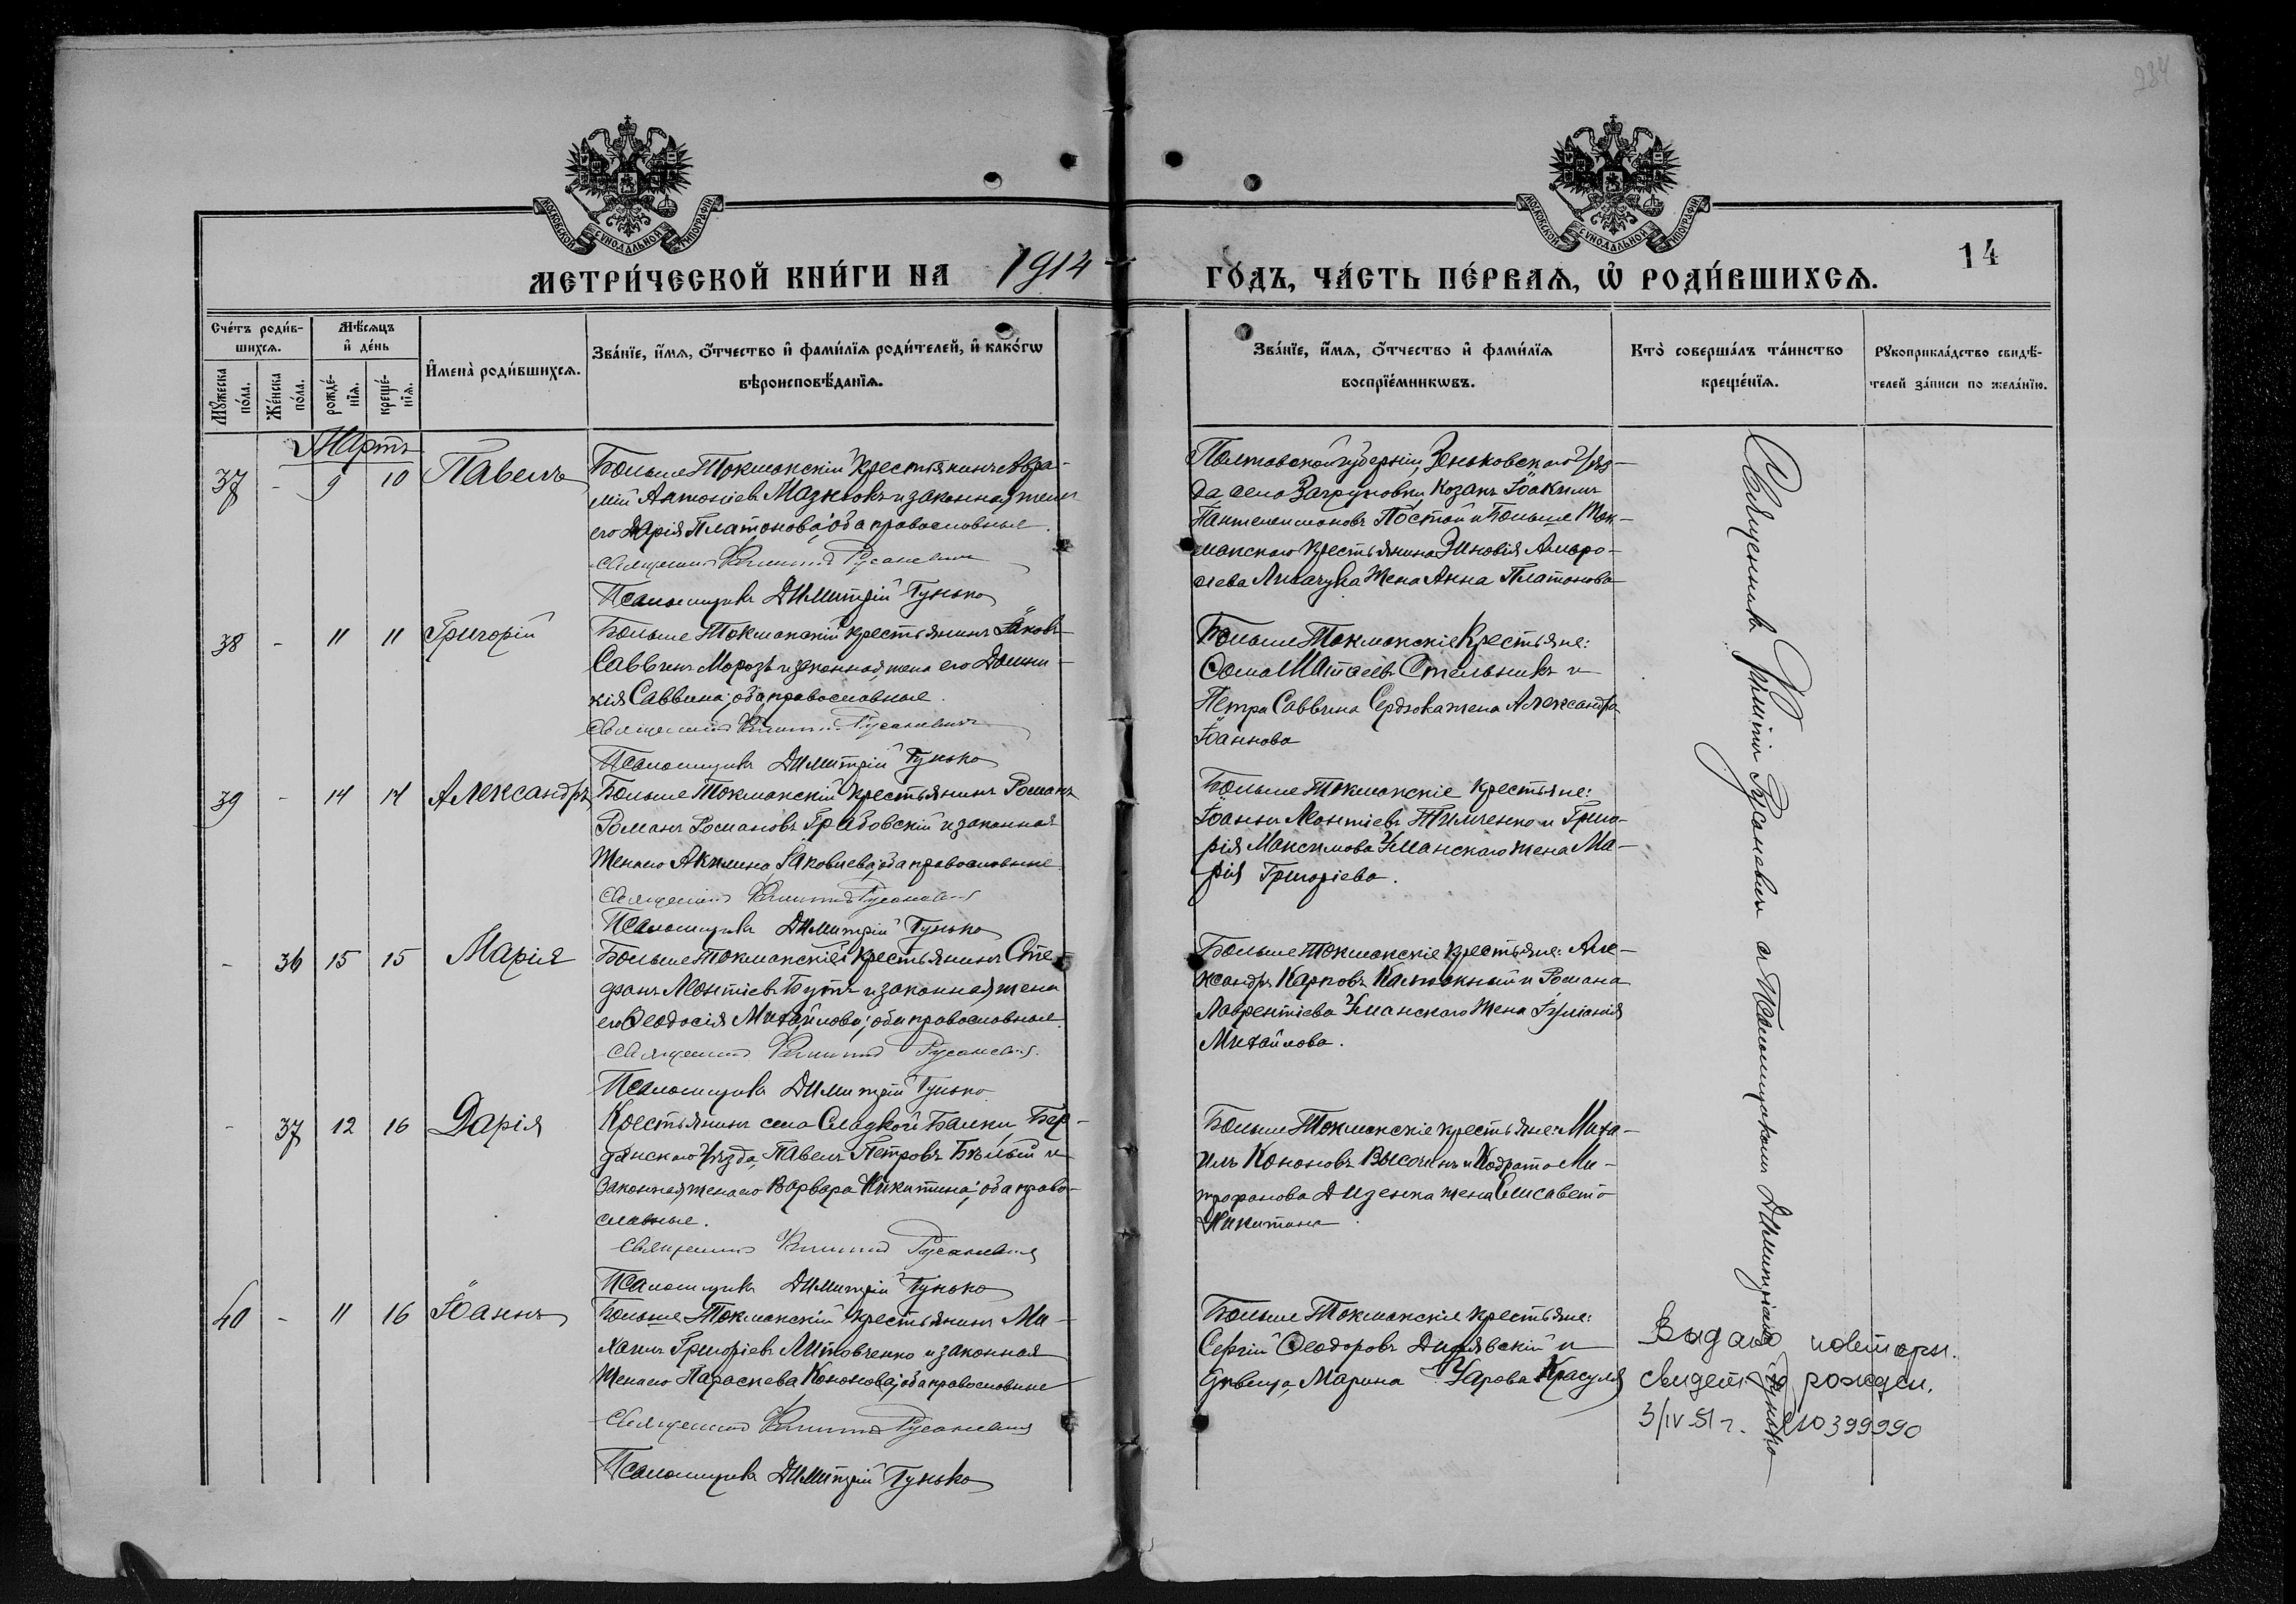 234
МОСКОВСКОЙ СѴНОДАЛЬНОЙ ТИПОГРАФІИ
МОСКОВСКОЙ СѴНОДАЛЬНОЙ ТИПОГРАФІИ
МЕТРИ́ЧЕСКОЙ КНИ́ГИ НА 1914 ГО́ДЪ, ЧА́СТЬ ПЕ́РВАѦ, Ѡ҆ РОДИ́ВШИХСѦ.
14
Сче́тъ роди́в-
шихсѧ.
Мꙋ́жеска по́ла.
Же́нска по́ла.
Мѣ́сѧцъ
и҆ де́нь
рожде́-
нїѧ.
креще́-
нїѧ.
И҆мена̀ роди́вшихсѧ.
Зва́нїе, и҆́мѧ, ѻ҆́тчество и҆ фами́лїѧ роди́телей, и҆ како́гѡ
вѣроисповѣ́данїѧ.
Зва́нїе, и҆́мѧ, ѻ҆́тчество и҆ фами́лїѧ
воспрїе́мникѡвъ.
Кто̀ соверша́лъ та́инство
креще́нїѧ.
Рꙋкоприкла́дство свидѣ́-
телей за́писи по жела́нїю.
Мартъ
37 - 9 10 Павелъ
Больше Токмакскій крестьянинъ Авра-
мій Антоніевъ и законная жена
его Дарія Платонова; оба православные.
Священникъ Русаневич
Псаломщикъ Димитрій Гунько
Полтавской губерніи, Зеньковскаго уѣз-
да села Загруновки козакъ Іоакимъ
Пантелеимоновъ Постой и Больше Ток-
макскаго крестьянина Зиновія Амвро-
сіева жена Анна Платонова
38 - 11 11 Григорій
Больше Токмакскій крестьянинъ Іаковъ
Саввинъ Морозъ и законная жена его Домни-
кія Саввина; оба православные.
Священникъ Русаневич
Псаломщикъ Димитрій Гунько
Больше Токмакскіе крестьяне:
Ѳома Матѳіевъ Стельникъ и
Петра Саввина Сердюка жена Александра
Іоаннова
39 - 14 14 Александръ
Больше Токмакскій крестьянинъ Романъ
Романъ Романовъ Грабовскій и законная
жена его Акилина Іаковлева; оба православные
Священникъ Русаневич
Псаломщикъ Димитрій Гунько
Больше Токмакскіе крестьяне:
Іоаннъ Леонтіевъ Тимченко и Григо-
рія Максимова Уманскаго жена Ма-
рія Григоріева.
- 36 15 15 Марія
Больше Токмакскій крестьянинъ Сте-
фанъ Леонтіевъ Бутъ и законная жена
его Ѳеодосія Михайлова; оба православные.
Священникъ Русаневич
Псаломщикъ Димитрій Гунько
Больше Токмакскіе крестьяне: Але-
ксандръ Карповъ и Романа
Лаврентіева Уманскаго жена Іуліанія
Михайлова.
- 37 12 16 Дарія
Крестьянинъ села Сладкой Балки, Бер-
дянскаго уѣзда, Павелъ Петровъ Бѣлый и
законная жена его Варвара Никитина; оба право-
славные.
Священникъ Русаневич
Псаломщикъ Димитрій Гунько
Больше Токмакскіе крестьяне: Миха-
илъ Кононовъ Высочинъ и Кодрата Ми-
трофанова Диденка жена Елисавета
Никитина
40 - 11 16 Іоаннъ
Больше Токмакскій крестьянинъ Ми-
хаилъ Григоріевъ Литовченко и законная
жена его Параскева Кононова; оба православные
Священникъ Русаневич
Псаломщикъ Димитрій Гунько
Больше Токмакскіе крестьяне:
Сергій Ѳеодоровъ и
дѣвица Марина Красуля
Священникъ Русаневич и Псаломщикъ Димитрій Гунько
Выдано повторн.
свидет. о рожден.
3/IV 51 г. 10399990